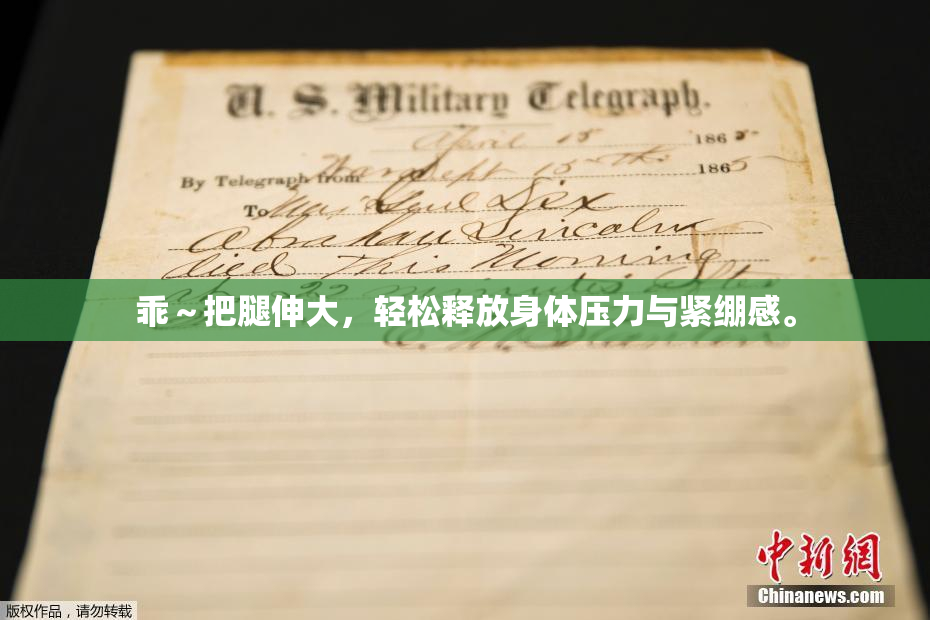 U. S. Military Telegraph.
April 15 1865
By Telegraph from War Dept 15th 1865
To Maj Genl Dix
Abraham Lincoln
died This Morning
22 minutes after
乖～把腿伸大，轻松释放身体压力与紧绷感。
E. M. Stanton
中新网
Chinanews.com
版权作品，请勿转载